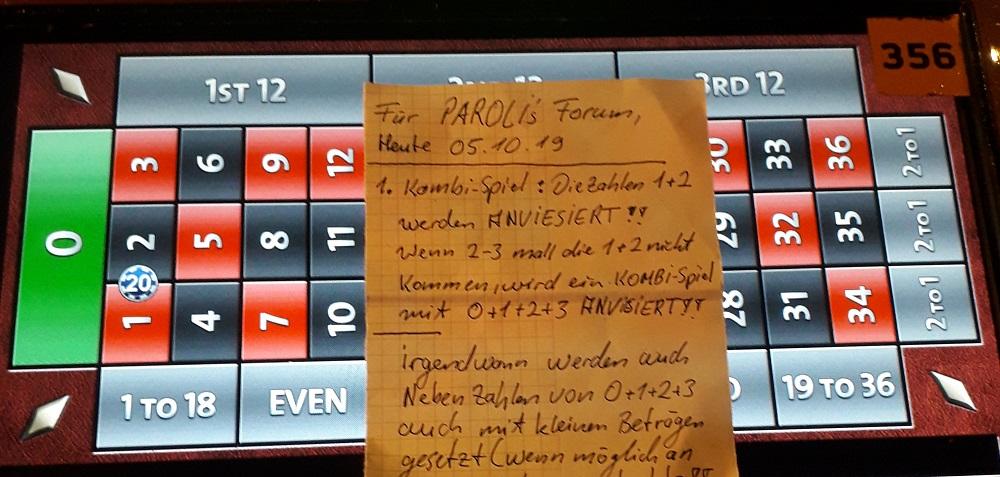 356
1ST 12
3RD 12
3 6 9 12 33 36 2 to 1
0
2 5 8 11 32 35 2 to 1
20
1 4 7 10 28 31 34 2 to 1
1 TO 18 EVEN 19 TO 36
Für PAROLI's Forum,
Heute 05.10.19
1. Kombi-Spiel: Die Zahlen 1+2
werden ANVIESIERT!!
Wenn 2-3 mall die 1+2 nicht
Kommen, wird ein KOMBI-Spiel
mit 0+1+2+3 ANVISIERT!!
irgendwann werden auch
Neben Zahlen von 0+1+2+3
auch mit kleinen Beträgen
gesetzt (wenn möglich an